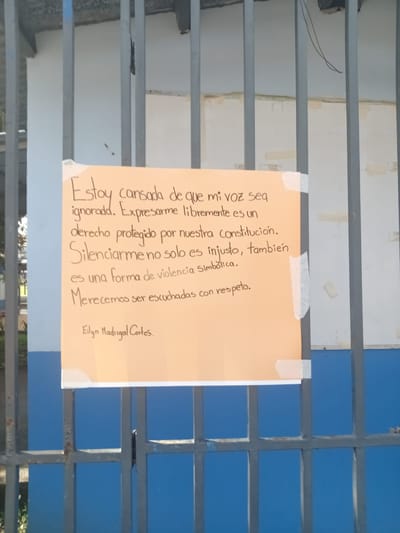 Estoy cansada de que mi voz sea
ignorada. Expresarme libremente es un
derecho protegido por nuestra constitución.
Silenciarme no solo es injusto, también
es una forma de violencia simbólica.
Merecemos ser escuchadas con respeto.
Eilyn Madrigal Cortes.